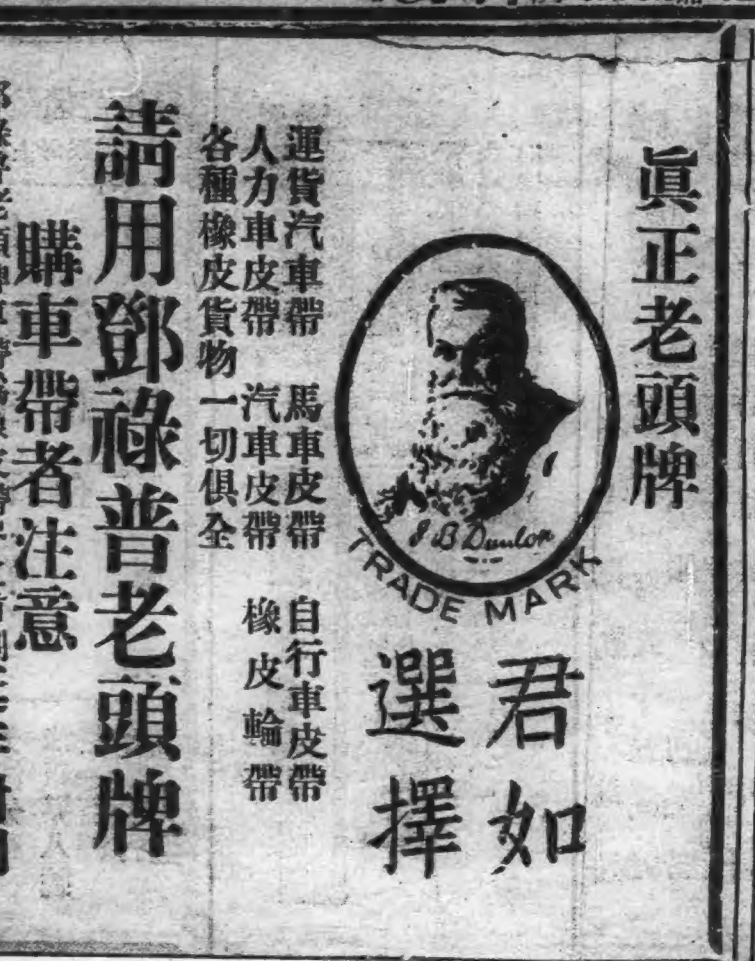 眞正老頭牌
J B Dunlop
TRADE MARK
君如
選擇
運貨汽車帶 馬車皮帶 自行車皮帶
人力車皮帶 汽車皮帶 橡皮輪帶
各種橡皮貨物一切俱全
請用鄧祿普老頭牌
購車帶者注意